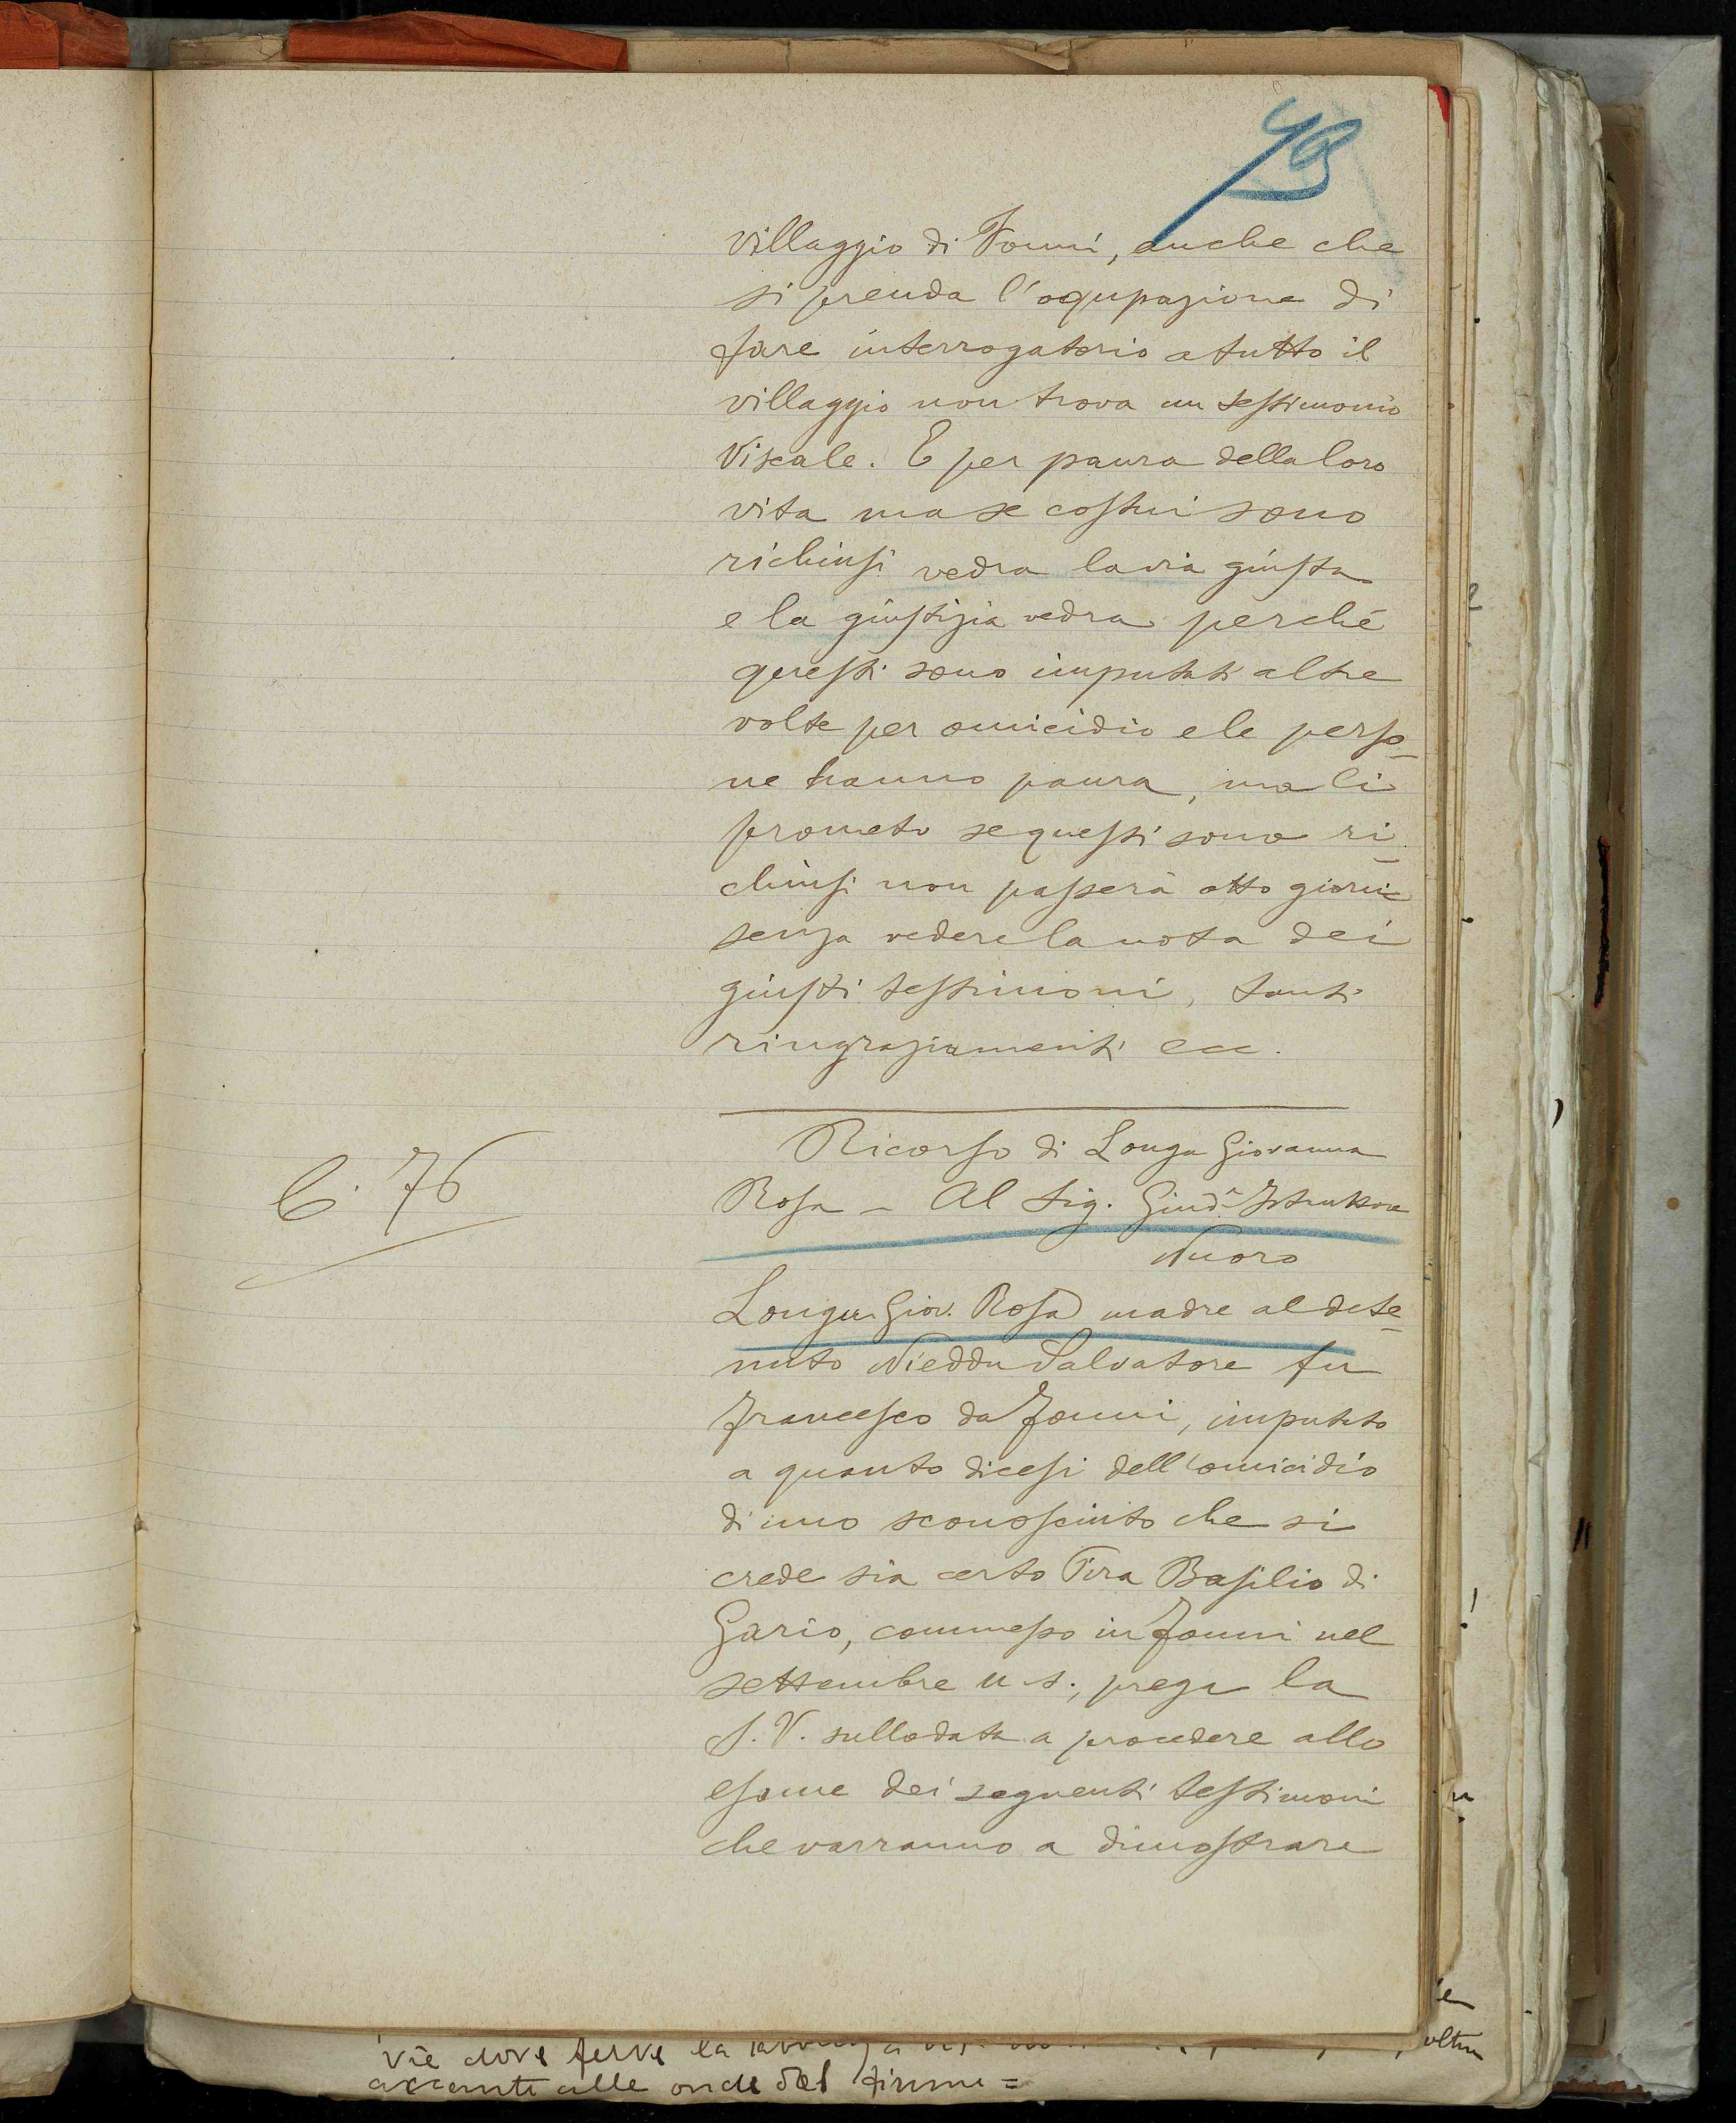 villaggio di Fonni, anche che
si prenda l'oqupazione di
fare interrogatorio a tutto il
villaggio non trova un testimonio
Viscale. E per paura della loro
vita ma se costui sono
richiusi vedra la via giusta
e la giustizia vedra perché
questi sono imputati altre
volte per omicidio e le perso-
ne hanno paura, ma li
prometo se questi sono ri-
chiusi non passerà otto giorni
senza vedere la nota dei
giusti testimoni, tanti
ringraziamenti ecc.
Ricorso di Longu Giovanna
C. 76
Rosa - Al Sig. Giud.e Istruttore
Nuoro
Longu Giov. Rosa madre al dete-
nuto Nieddu Salvatore fu
Francesco da Fonni, imputato
a quanto dicesi dell'omicidio
di uno sconosciuto che si
crede sia certo Pira Basilio di
Gario, commesso in Fonni nel
settembre u. s., prega la
S. V. sullodata a procedere allo
esame dei seguenti testimoni
che varranno a dimostrare
vie dove ferve la
accanto alle onde del fiume =